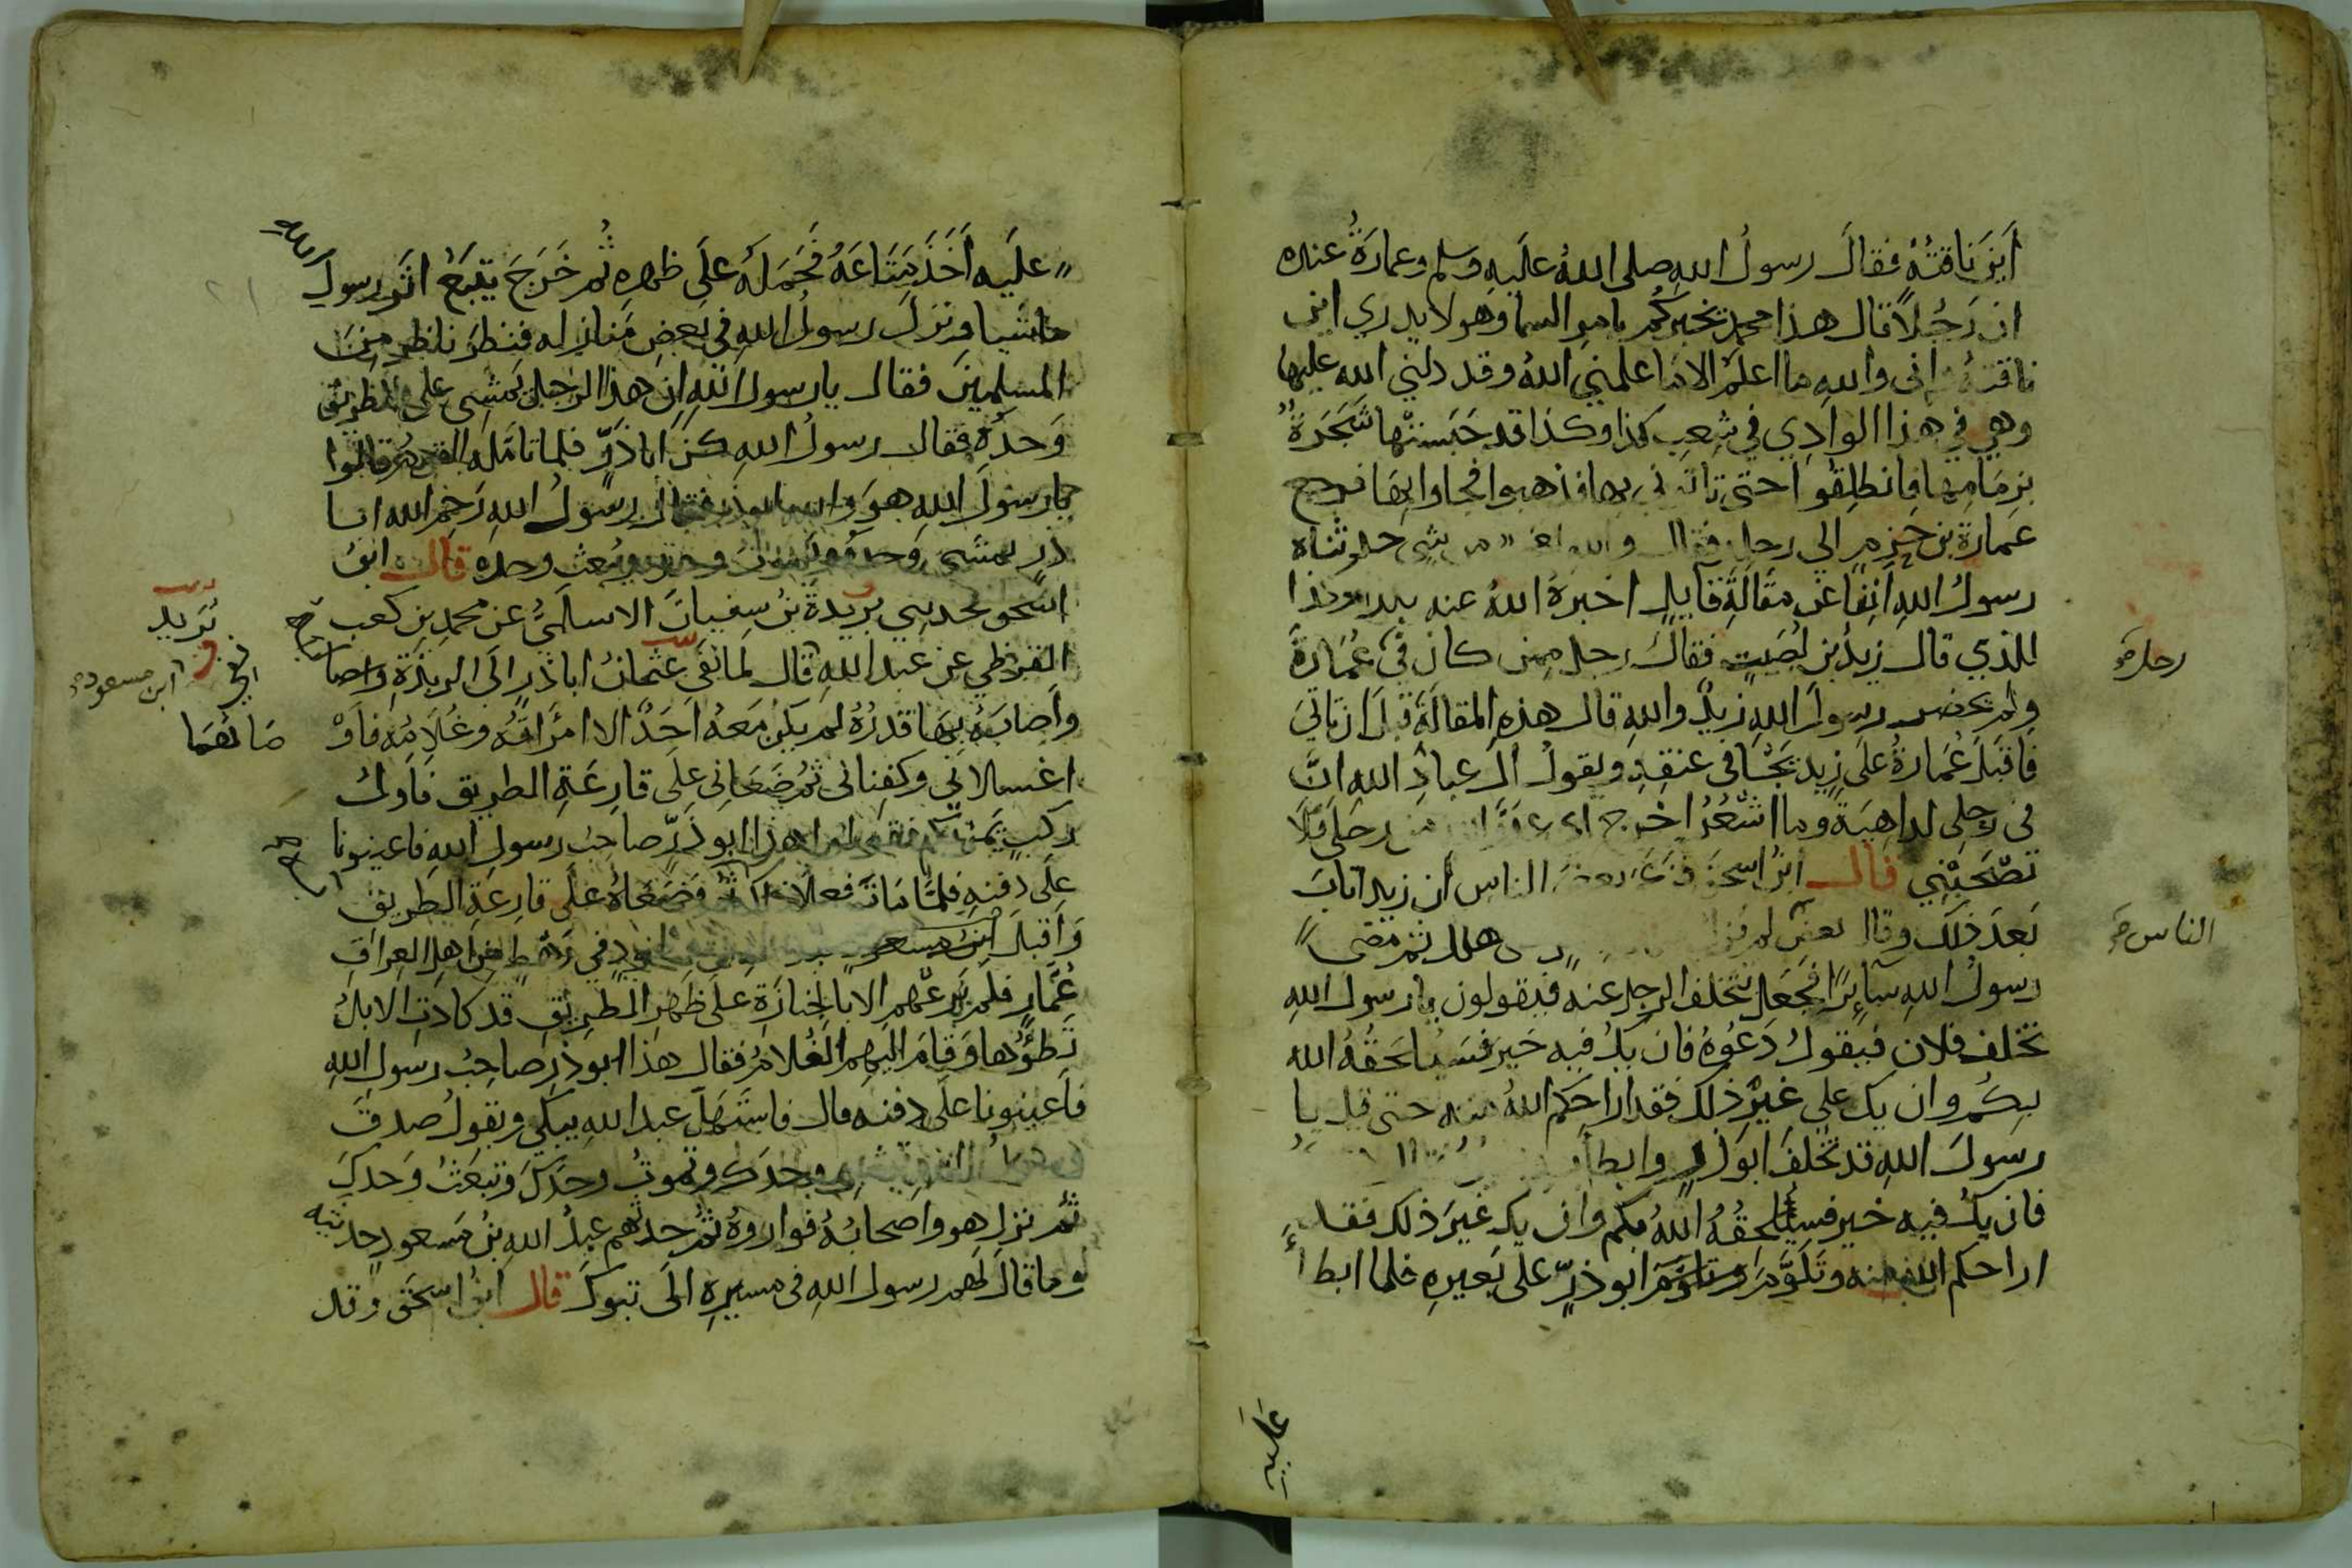 اَيْنَ نَاقَتُهُ فقَالَ رسولُ اللهِ صلى اللهُ عَليهِ وسلم وعمارَةُ عنده
ان رَجُلاً قال هذا محمد يخبركُم بامر السما وهو لا يدري اين
ناقته وانى والله ما اعلم الا ما علمني اللهُ وقد دلني الله عليها
وهي في هذا الوادِي في شِعبِ كذا وكذا قد حَبَستْها شَجَرَةٌ
بزِمَامِها فانطلِقوا حتى تاتوني بها فذهبوا فجاوا بها فرجع
عمارة بن حزمٍ الي رحله فقال والله من شي حدثناه
رسولُ اللهِ انِفًا عن مقَالَةِ قَآيلٍ اخبرهُ اللهُ عنه بكذا وكذا
للذي قال زيدُ بن لُصَيتٍ فقالَ رجل ممن كان في عُمارةَ
رحل صح
ولم يحضر رسولَ اللهِ زيدٌ واللهِ قال هذهِ المقالَةَ قبلَ ان تاتيَ
فاقبَلَ عُمارةُ على زيد يَجَأ في عنقِهِ ويقولُ الَى عبادَ الله انَّ
في رحلى لداهيةً وما اشعُرُ اخرج اى عدو الله من رحلى فلا
تصحَبْنِي قال ابن اسحق فزعم بعض الناس ان زيدا تابَ
بَعدَ ذلك وقال بعض لم يزل هلك ثم مضى
الناس صح
رسولُ اللهِ سَآئرًا فجَعل يتخلف الرجل عنه فيقولون يا رسول اللهِ
تخلف فلان فيقولُ دَعُوهُ فان يكُ فيه خَير فسَيُلحقُهُ الله
بكُم وان يك على غيرُ ذلك فقد اراحكم اللهُ منه حتى قيل يا
رسولَ اللهِ قد تخلفَ ابو ذر وابطا
فان يكُ فيه خير فسيلحقُهُ اللهُ بكم وان يك غيرَ ذلك فقد
اراحكم الله منه وتَلَوَّمَ ابو ذرٍّ على بَعيرِهِ فلما ابطا
عَلَيه
عليه اَخَذَ مَتَاعَهُ فحَمَلَهُ علَى ظهره ثُم خَرَجَ يتبَعُ اثَرَ رسولِ الله
ماشيا ونزل رسولُ اللهِ في بعضِ مَنازله فنظرَ ناظر مِنَ
المسلمينَ فقال يا رسول اللهِ ان هذا الرجل يَمشى على الطريق
وَحدُه فقال رسولُ اللهِ كن ابا ذَرٍّ فلما تامله القوم قالوا
يا رسولَ اللهِ هوَ والله ابو ذر فقال رسولُ اللهِ رَحِمَ الله ابا
ذر يمشى وَحده ويموتُ وحده ويُبعث وحده قال ابنُ
اسحق فحدثني بريدةَ بنُ سفيانَ الاسلَمىُّ عن محمدِ بن كعب
بُرَيد
القرظي عن عبد اللهِ قال لما نَفَى عثمانُ ابا ذرٍ الَى الربذةِ واصا
ابن مسعود صح
واصابَهُ بهَا قدَرُهُ لم يكن مَعهُ اَحَدٌ الا امرَاَتُه وغُلَامُه فاَوْ
صَاهُمَا
اغسلانى وكفنانى ثم ضَعَانِى علَى قارِعَةِ الطريق فاَولُ
ركبٍ يَمُرُّ بكم فقولوا هذا ابو ذَرٍّ صاحبُ رسولِ اللهِ فاعينونا
علَى دفنهِ فلمَّا مَاتَ فعلا ذلك ثُم وَضَعَاهُ علَى قارعَةِ الطريقِ
وَاَقبلَ ابن مسعود في رَهْطٍ من اَهلِ العِراقِ
عُمَّار فلم يَرعْهم الا بالجنازَةِ علَى ظَهرِ الطريقِ قد كادَتِ الابلُ
تطؤُها وَقامَ اليهم الغُلامُ فقال هذا ابو ذر صاحِبُ رسولِ اللهِ
فاَعينونا علَى دفنه قال فاستَهَلّ عبد اللهِ يبكي ويقولُ صدقَ
رسولُ اللهِ تمشى وحدَك وتموتُ وحدَكَ وتبعَثُ وَحدكَ
ثُم نزل هو واصحابُهُ فوارَوهُ ثُم حدثهم عبدُ اللهِ بنُ مَسعودٍ حديثه
وما قالَ لهم رسول اللهِ فى مسيرِهِ الَى تبوكَ قال ابنُ اسحَق وقد